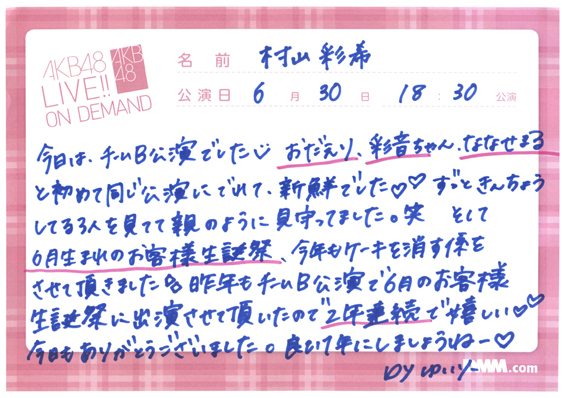 AKB48
LIVE!!
ON DEMAND
AKB
48
名前 村山彩希
公演日 6月30日 18:30公演
今日は、チームB公演でした おだえり、彩音ちゃん、ななせまる
と初めて同じ公演にでれて、新鮮でした♡♡ ずっときんちょう
してる3人を見てて親のように見守ってました。笑 そして
6月生まれのお客様生誕祭、今年もケーキを消す係を
させて頂きました 昨年もチームB公演で6月のお客様
生誕祭に出演させて頂いたので2年連続で嬉しい♡♡
今日もありがとうございました。良い1年にしましょうねー♡
by ゆいりー
DMM.com